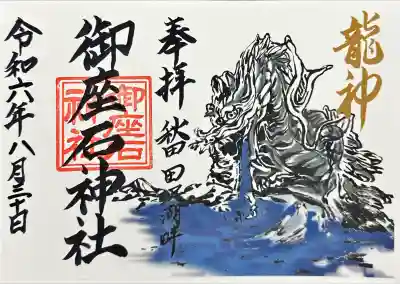 龍神
奉拝 秋田 田沢湖畔
御座石神社
御座石神社
令和六年八月三十日